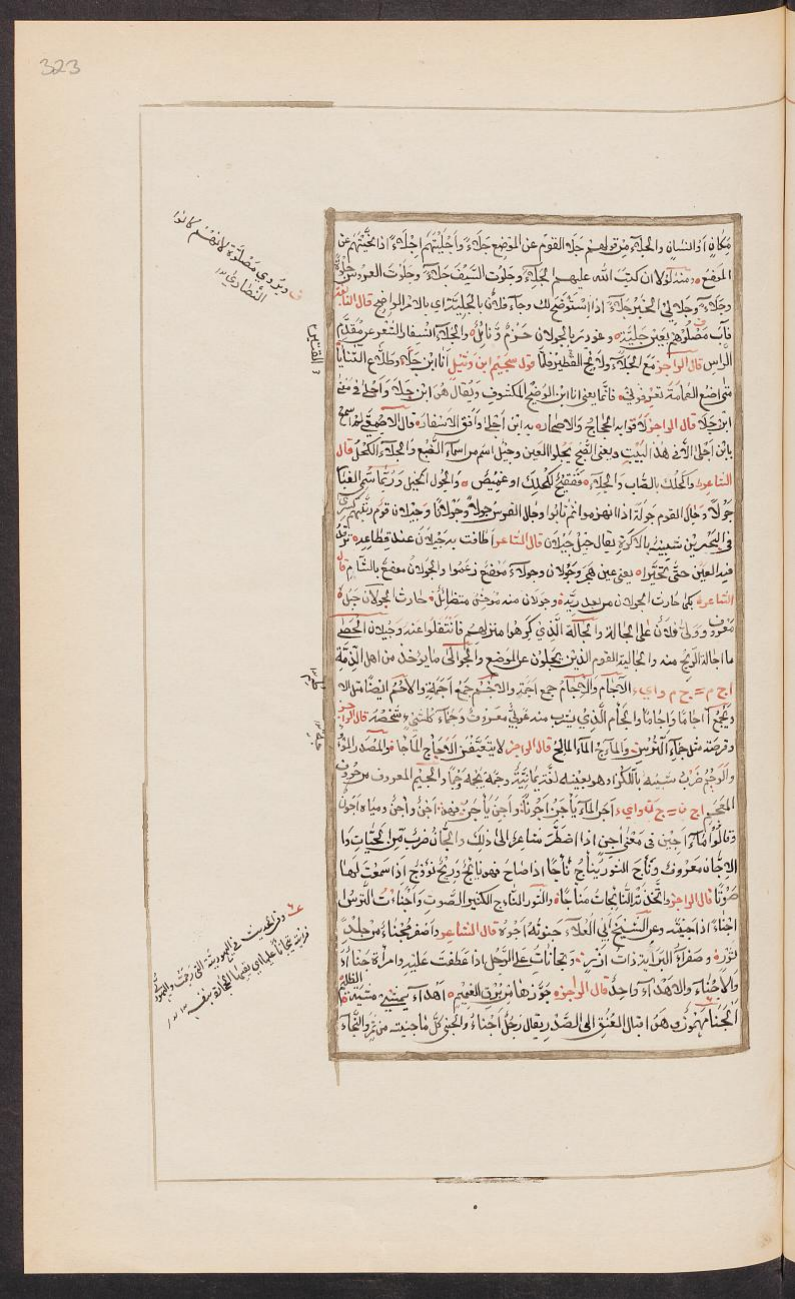 323
مكانٍ اذا انسان والجلاء من قولهم جلا القوم عن الموضع جلاءً واجليتهم اجلاءً اذا نحيتهم عن
الموضع ومنه لولا ان كتب الله عليهم الجلاء وجلوت السيف جلاءً وجلوت العروس جلوة
وجلاءً وجلا لي الخبر جلاءً اذا استوضح لك وجاء فلان بالجلية اي بالامر الواضح قال النابغة
فآب مصلوهم بعين جلية وغودر بالجولان حزم ونائل والجلاء انسفار الشعر عن مقدم
الراس قال الراجز مع الجلاء ولائح القتير فاما قول سحيم ابن وثيل انا ابن جلا وطلاع الثنايا
متى اضع العمامة تعرفوني فانما يعني انا ابن الوضيح المكشوف ويقال هو ابن جلا واجلى في معنى
ابن جلا قال الراجز لاقوا به الحجاج والاصحار به ابن اجلى وافق الاسفار قال الاصمعي لم اسمع
بابن اجلى الا في هذا البيت ويعني الصبح يجلوا العين وجيل اسم من اسماء الضبع والجلاء الكحل قال
الشاعر واكحلك بالصاب والجلاء ففقح لكحلك او غمض والجول الخيل وربما سمي الغبار
جولا وجال القوم جولة اذا انهزموا ثم ثابوا وجال الفرس جولة وجولانا وجيلان قوم رتبهم كسرى
في البحرين شبيه بالاكرة يقال جيل جيلان قال الشاعر اطافت به جيلان عند قطاعه تردد
فيه العين حتى تحيرا يعني عين هجر وجولان وجولاء موضع زعموا والجولان موضع بالشام قال
الشاعر بكى حارث الجولان من فقد ربه وجولان منه موحش متضائل حارث الجولان جبل
معروف وولي فلان على الجالة والجالة الذي كرهوا منزلهم فانتقلوا عنه وجيلان الحصى
ما اجالة الريح منه والجالية القوم الذين يجلون عن الموضع والجوالي ما يؤخذ من اهل الذمة
ا ج م = ج م واي الآجام والإجام جمع اجمة والاجم جمع اجمة والاجم ايضا مثل الا
ويجمع آجاما وإجاما والجام الذي يشرب منه عربي معروف وجماء كل شيء شخصه قال الراجز
وقرصة مثل جماء الترس والمأج الماء المالح قال الراجز لا يتعيفن الاجاج الماجا والمصدر المؤو
والوجم ضرب شبيه باللكز او هو بعينه لغة يمانية وجمه يجمه وجما والجيم المعروف من حروف
المعجم ا ج ن = ج ن واي اجن الماء ياجن اجونا واجن ياجن فهو اجن واجن ومياه اجون
وقالوا ماء اجين في معنى اجن اذا اضطر شاعر الى ذلك والجان ضرب من الحيات وا
الاجان معروف ونأج الثور ينأج نأجا اذا صاح فهو نائج وريح نؤوج اذا سمعت لها
صوتا قال الراجز واتخذته النائجات مناجا والثور النائج الكثير الصوت واجنأت الترس ا
اجناء اذا حنيته وعن الشيخ ابي العلاء جنوئه اجوده قال الشاعر واصفر مجنأ من جلد
ثور وصفراء البراية ذات ازر وتجانأت على الرجل اذا عطفت عليه وامرأة جنأ اذ
والاجناء والاهداء واحد قال الراجز جوزها من برق الغميم اهدأ يمشي مشية الظليم
الجنأ مهموز هو اقبال العنق الى الصدر يقال رجل اجنأ والجنى كل ما جنيته من ثمر والنجاء
ف ويروى مصلوه لانهم كانوا
النصارى
القتير
وفي الحديث في اليهودية التي رجمت واليهودي